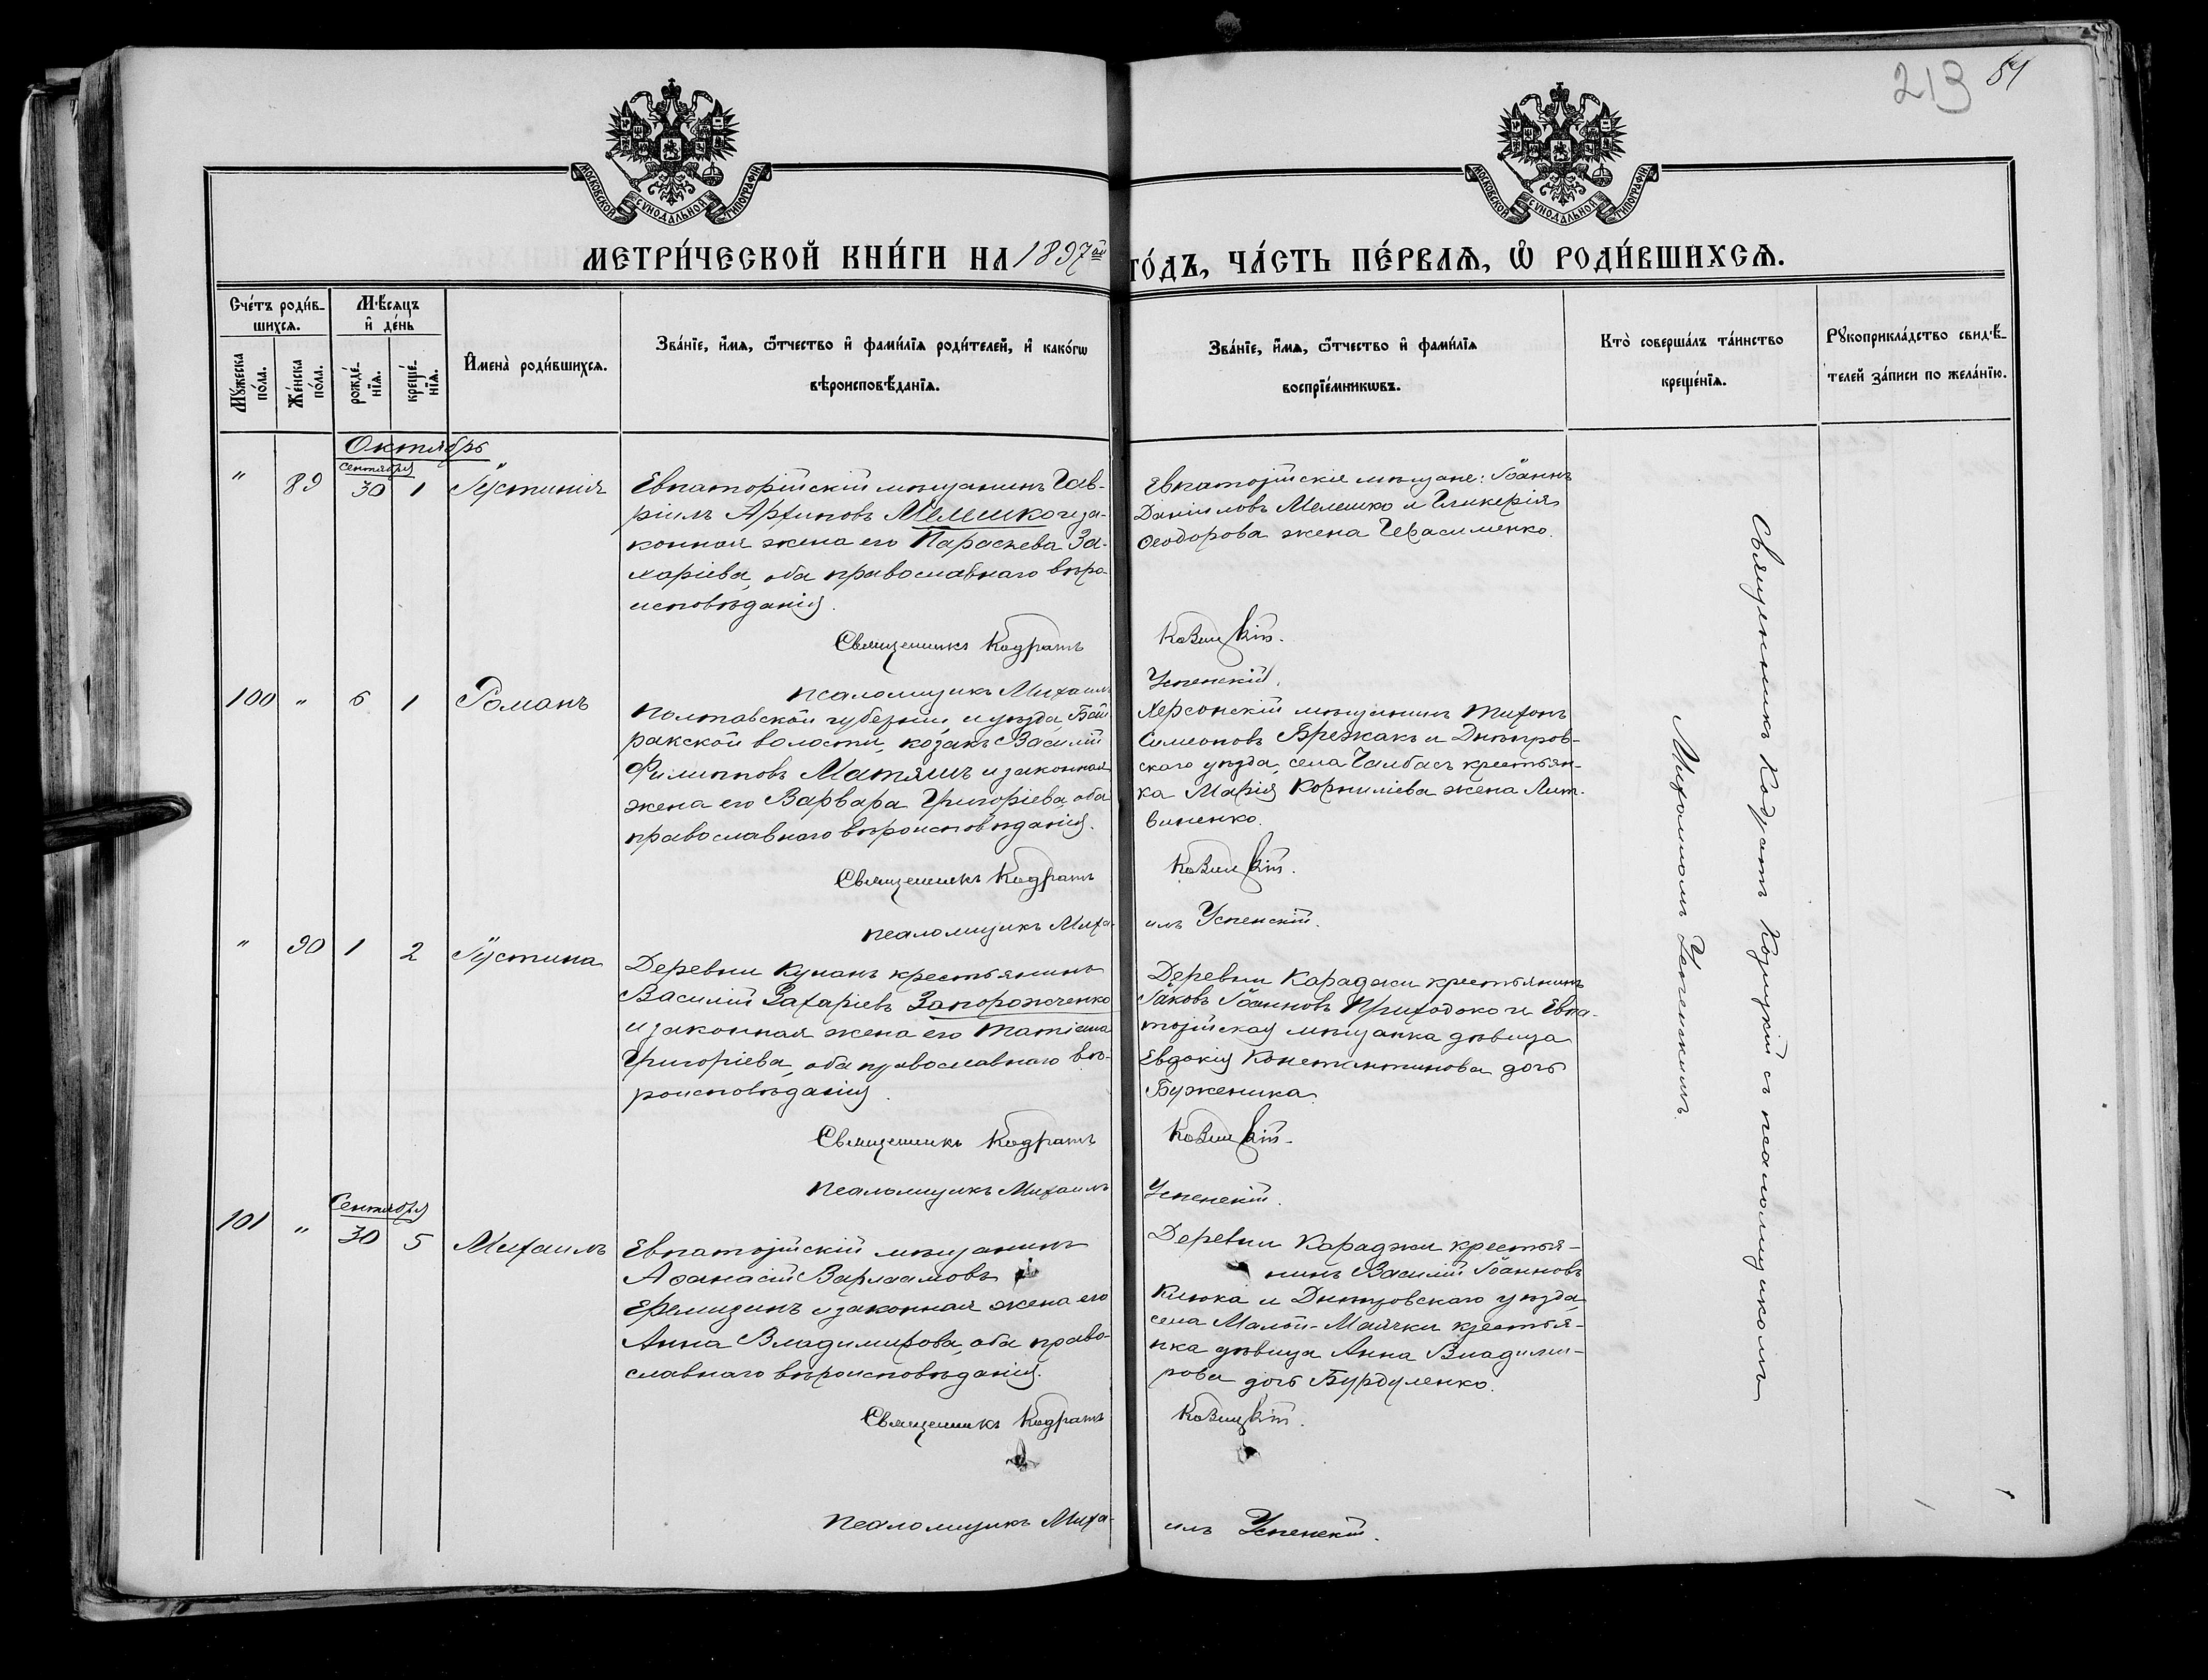 213 51
МОСКОВСКОЙ СѴНОДАЛЬНОЙ ТИПОГРАФІИ
МОСКОВСКОЙ СѴНОДАЛЬНОЙ ТИПОГРАФІИ
МЕТРИ́ЧЕСКОЙ КНИ́ГИ НА 1897ой ГО́ДЪ, ЧА́СТЬ ПЕ́РВАѦ, Ѽ РОДИ́ВШИХСѦ.
Сче́тъ роди́в-
шихсѧ.
Мꙋ́жеска по́ла.
Же́нска по́ла.
Мѣ́сѧцъ
и҆ де́нь
рожде́нїѧ.
креще́нїѧ.
И҆мена̀ роди́вшихсѧ.
Зва́нїе, и҆́мѧ, ѻ҆́тчество и҆ фами́лїѧ роди́телей, и҆ како́гѡ
вѣроисповѣ́данїѧ.
Зва́нїе, и҆́мѧ, ѻ҆́тчество и҆ фами́лїѧ
воспрїе́мникѡвъ.
Кто̀ соверша́лъ та́инство
креще́нїѧ.
Рꙋкоприкла́дство свидѣ́-
телей за́писи по жела́нїю.
Октябрь
" 89 Сентября 30 1 Іустинія
Евпаторійскій мѣщанинъ Гав-
ріилъ Архиповъ Мелешко и за-
конная жена его Параскева За-
харіева, оба православнаго вѣро-
исповѣданія.
Священникъ Кодратъ
псаломщикъ Михаилъ
Евпаторійскіе мѣщане: Іоаннъ
Даніиловъ Мелешко и Гликерія
Ѳеодорова жена Герасименко.
Успенскій.
100 " 6 1 Романъ
Полтавской губерніи и уѣзда, Бай-
ракской волости, козакъ Василій
Филипповъ Матяшъ и законная
жена его Варвара Григоріева, оба
православнаго вѣроисповѣданія.
Священникъ Кодратъ
псаломщикъ Миха-
Херсонскій мѣщанинъ Тихонъ
Симеоновъ Брежакъ и Днѣпров-
скаго уѣзда, села Чалбасъ крестьян-
ка Марія Корниліева жена Лит-
виненко.
илъ Успенскій.
" 90 1 2 Іустина
Деревни Кунанъ крестьянинъ
Василій Захаріевъ Запорожченко
и законная жена его Татіана
Григоріева, оба православнаго вѣ-
роисповѣданія.
Священникъ Кодратъ
псаломщикъ Михаилъ
Деревни Караджи крестьянинъ
Іаковъ Іоанновъ Приходько и Евпа-
торійская мѣщанка дѣвица
Евдокія Константинова дочь
Буженика.
Успенскій.
101 " Сентября 30 5 Михаилъ
Евпаторійскій мѣщанинъ
Аѳанасій Варлаамовъ
Еремизинъ и законная жена его
Анна Владимирова, оба право-
славнаго вѣроисповѣданія.
Священникъ Кодратъ
псаломщикъ Миха-
Деревни Караджи крестья-
нинъ Василій Іоанновъ
Клюка и Днѣпровскаго уѣзда,
села Малой-Маячки крестья-
нка дѣвица Анна Владими-
рова дочь Бурдуленко.
илъ Успенскій.
Священникъ Кодратъ с псаломщикомъ
Михаиломъ Успенскимъ.